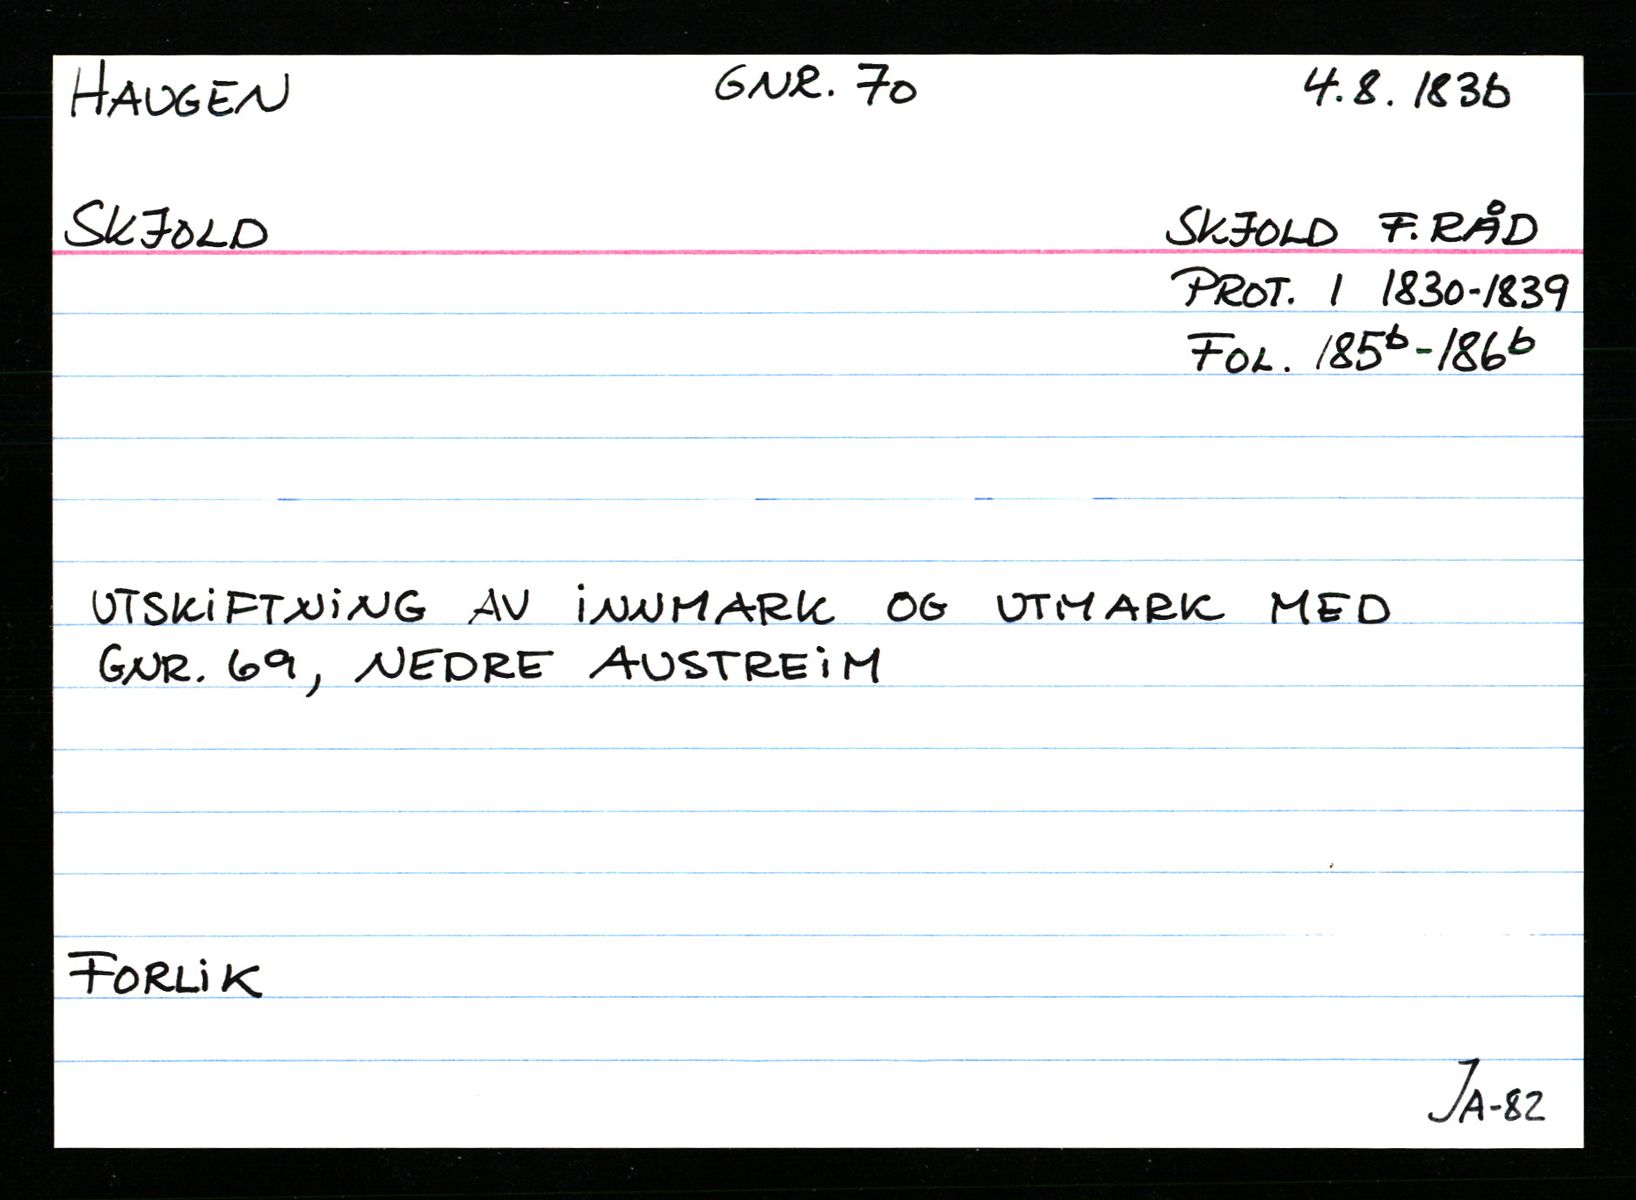 HAUGEN GNR. 70 4.8. 1836
SKJOLD SKJOLD F.RÅD
PROT. 1 1830-1839
FOL. 185b-186b
UTSKIFTNING AV INNMARK OG UTMARK MED
GNR. 69, NEDRE AUSTREIM
FORLIK
JA-82